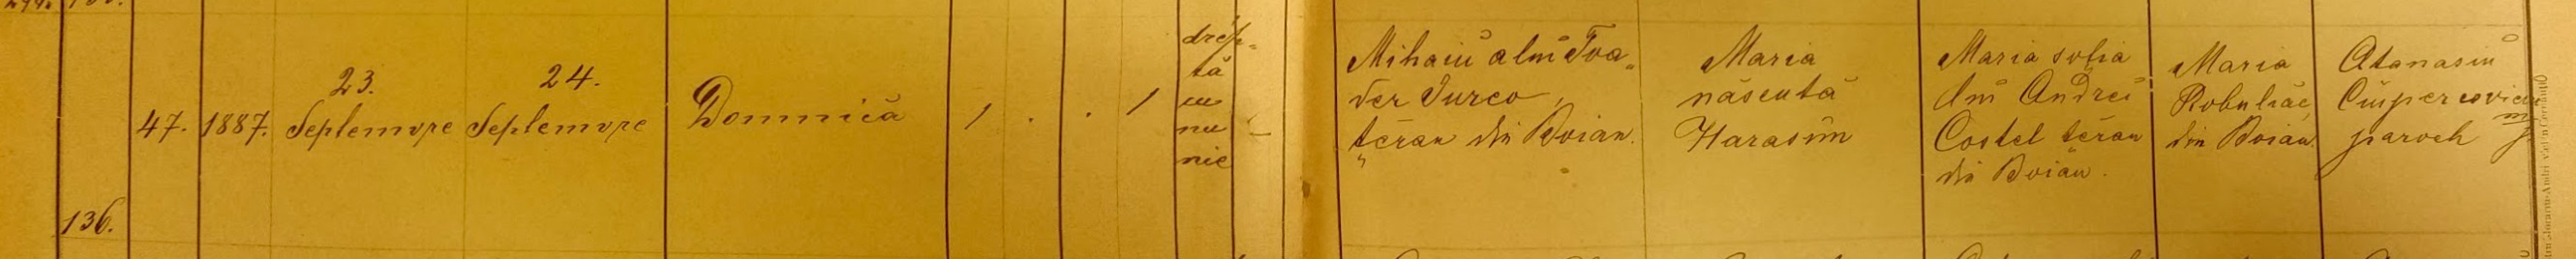 47.
1887.
23.
Septemvre
24.
Septemvre
Domnica
1
.
.
1
drép-
tă
cu
mu
nie
Mihaiu a lui Toa-
der Turco,
țĕran din Boian.
Maria
născută
Harasim
Maria soția
lui Andrei
Costel țĕran
din Boian.
Maria
din Boian.
Atanasiu
paroch
136.